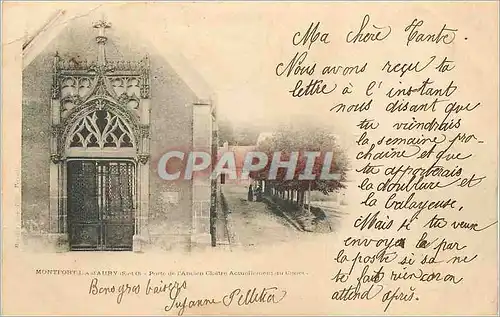 Ma chère Tante.
Nous avons reçu ta
lettre à l'instant
nous disant que
tu viendrais
la semaine pro-
chaine et que
tu apporterais
la doublure et
la balayeuse,
Mais si tu veux
envoyer le par
la poste si sa ne
te fait rien car on
attend après.
CPArama.com
MONTFORT-L'AMAURY (S.-et-O.) - Porte de l'Ancien Cloître Actuellement au Cimetière
Bons gros baisers
Suzanne Pelletier